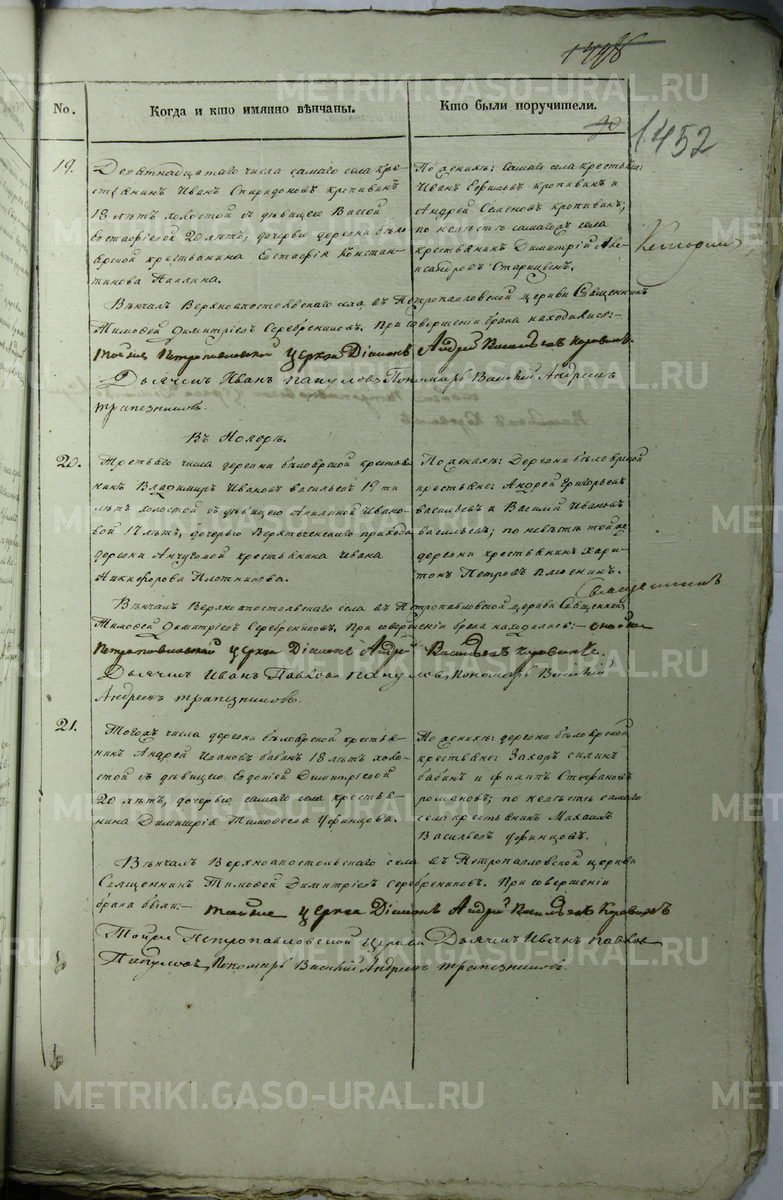 1452
No.
Когда и кто имянно вѣнчаны.
Кто были поручители.
19.
Девятнадцатаго числа самаго села кре-
стьянинъ Иванъ Спиридоновъ Кропивинъ
18 лѣтъ холостой съ дѣвицею Вассой
Евстафіевой 20 лѣтъ, дочерью деревни Бѣло
ярской крестьянина Евстафія Констан-
тинова Япина.
По женихѣ: самаго села крестьяне:
Иванъ Ефимовъ Кропивинъ и
Андрей Семеновъ Кропивинъ;
по невѣстѣ самагожъ села
крестьянинъ Димитрій Але-
ксандровъ Старицынъ.
Вѣнчалъ Верхноапостольскаго села въ Петропавловской церкви Священникъ
Тимофей Димитріевъ Серебрениковъ. При совершеніи брака находились:-
тойже Петропавловской Церкви Діаконъ Андрей Васильевъ
Дьячекъ Иванъ Папуловъ Пономарь Василій Андреевъ
Трапезниковъ.
Въ Ноябрѣ.
20.
Третьяго числа деревни Бѣлоярской крестья-
нинъ Владимиръ Ивановъ Васильевъ 19 ти
лѣтъ холостой съ дѣвицею Апилиной Ивано-
вой 17 лѣтъ, дочерью Верхтеченскаго прихода
деревни Анчуговой крестьянина Ивана
Никифорова Плотникова.
По женихѣ: Деревни Бѣлоярской
крестьяне: Андрей Григорьевъ
Васильевъ и Василій Ивановъ
Васильевъ; по невѣстѣ той же
деревни крестьянинъ Хари-
тонъ Петровъ
Священникъ
Вѣнчалъ Верхноапостольскаго села въ Петропавловской церкви Священникъ
Тимофей Димитріевъ Серебрениковъ. При совершеніи брака находились:- тойже
Петропавловской церкви Діаконъ Андрей Васильевъ
Дьячекъ Иванъ Павловъ Папуловъ, Пономарь Василій
Андреевъ Трапезниковъ.
21.
Тогожъ числа деревни Бѣлоярской крестья-
нинъ Андрей Ивановъ Бабинъ 18 лѣтъ холо-
стой съ дѣвицею Евдокіей Димитріевой
20 лѣтъ, дочерью самаго села крестья-
нина Димитрія Тимофеева Уфинцова.
По женихѣ: деревни Бѣлоярской
крестьяне: Захаръ Силинъ
Бабинъ и Филипъ Стефановъ
Романовъ; по невѣстѣ самаго
села крестьянинъ Михаилъ
Васильевъ Уфинцовъ.
Вѣнчалъ Верхноапостольскаго села въ Петропавловской церкви
Священникъ Тимофей Димитріевъ Серебрениковъ. При совершеніи
брака были:- тойже церкви Діаконъ Андрей Васильевъ
Тойже Петропавловской Церкви Дьячекъ Иванъ Павловъ
Папуловъ, Пономарь Василій Андреевъ Трапезниковъ.
METRIKI.GASO-URAL.RU